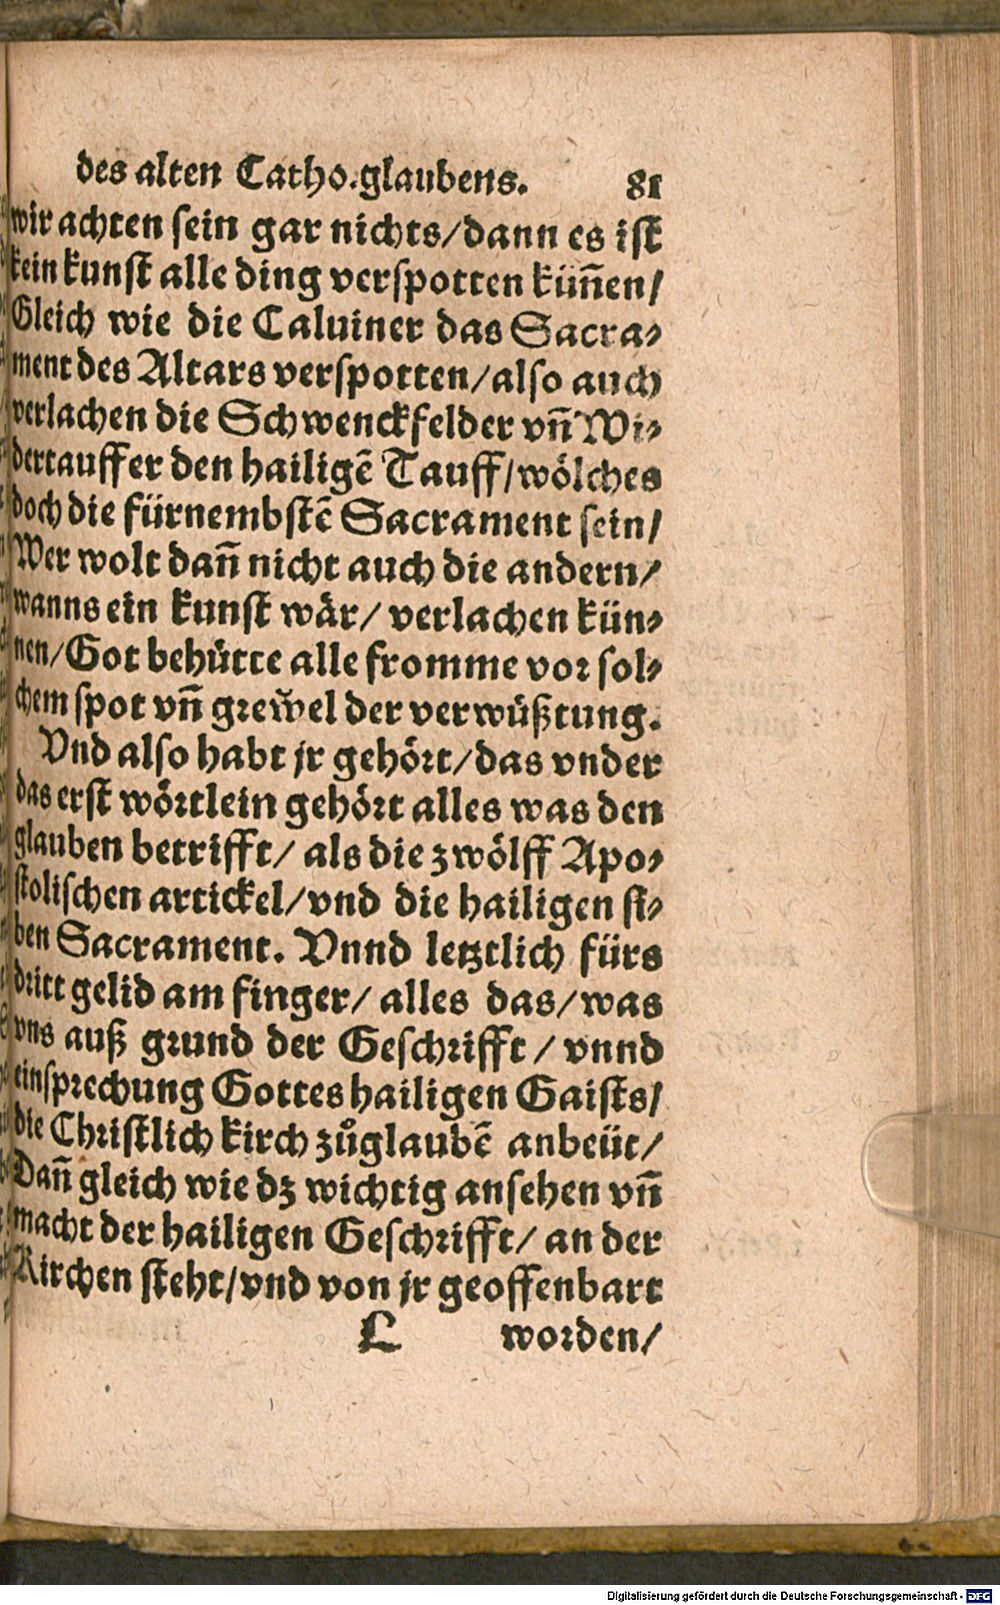 des alten Catho.glaubens. 81
wir achten sein gar nichts/dann es ist
kein kunst alle ding verspotten künñen/
Gleich wie die Caluiner das Sacra-
ment des Altars verspotten/also auch
verlachen die Schwenckfelder vñ Wi-
dertauffer den hailigē Tauff/wölches
doch die fürnembstē Sacrament sein/
Wer wolt dañ nicht auch die andern/
wanns ein kunst wär/ verlachen kün-
nen/Got behütte alle fromme vor sol-
chem spot vñ grewel der verwüßtung.
Vnd also habt jr gehört/das vnder
das erst wörtlein gehört alles was den
glauben betrifft/ als die zwölff Apo-
stolischen artickel/vnd die hailigen si-
ben Sacrament. Vnnd letztlich fürs
dritt gelid am finger/ alles das/was
vns auß grund der Geschrifft / vnnd
einsprechung Gottes hailigen Gaists/
die Christlich kirch zůglaubē anbeüt/
Dañ gleich wie dz wichtig ansehen vñ
macht der hailigen Geschrifft/ an der
Kirchen steht/vnd von jr geoffenbart
L worden/
Digitalisierung gefördert durch die Deutsche Forschungsgemeinschaft - DFG